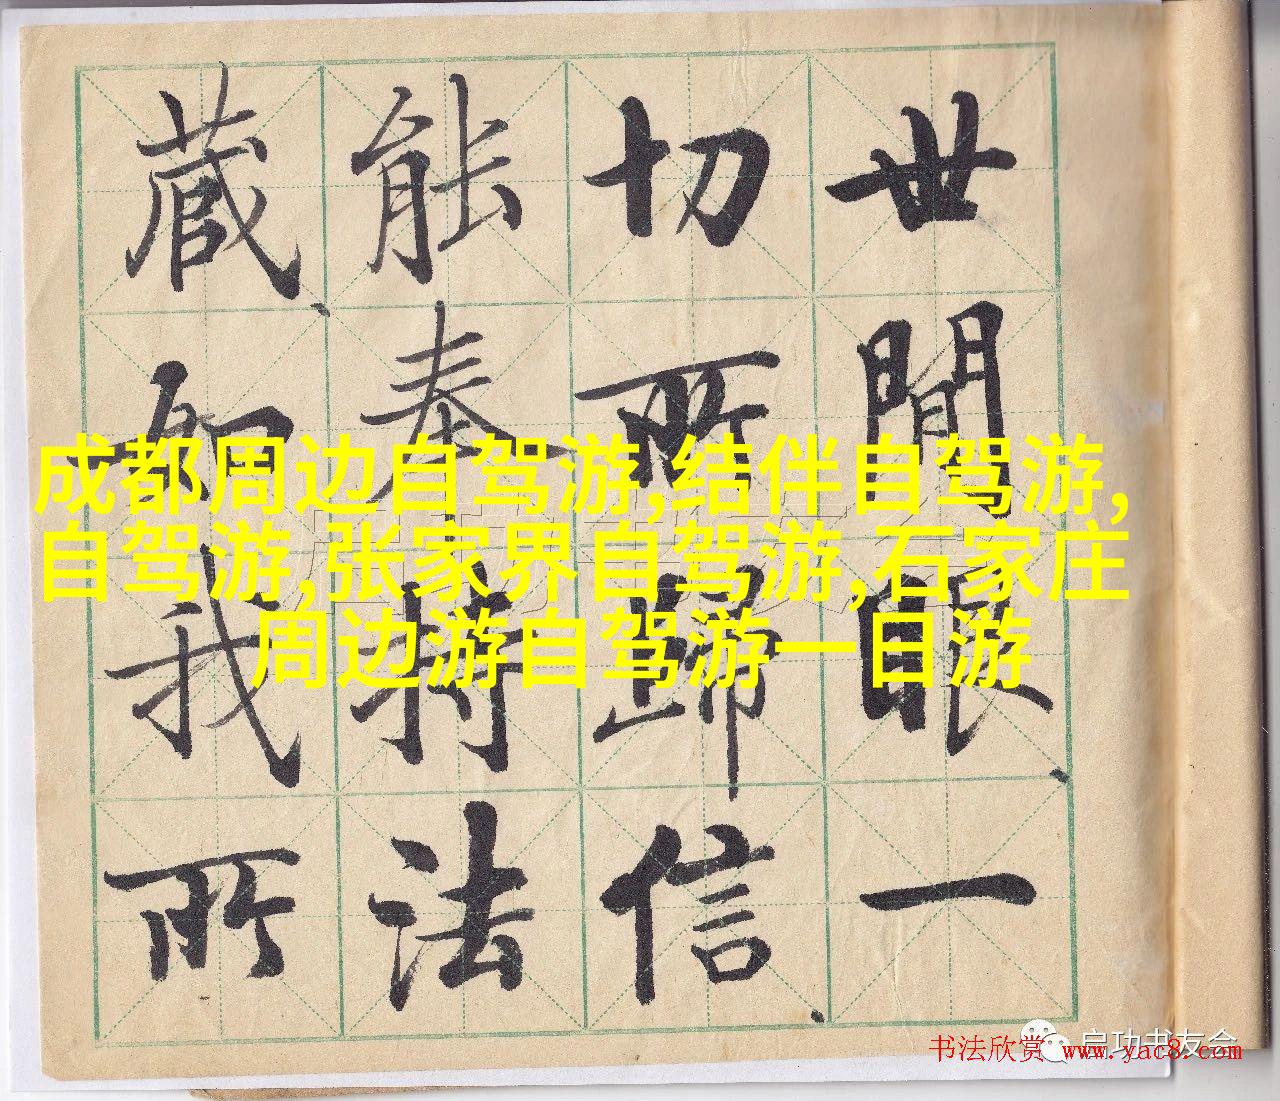 世間眼一
切所歸信
能奉持法
藏如我所
成都周边自驾游,结伴自驾游,
自驾游,张家界自驾游,石家庄
周边游自驾游一日游
启功书友会
书法欣赏 www.yac8.com